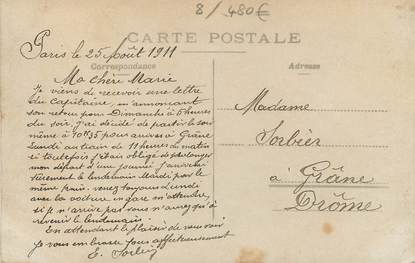 8/480€
CARTE POSTALE
Correspondance
Adresse
Paris le 25 Août 1911
Ma Chère Marie
Je viens de recevoir une lettre
du Capitaine, m'annoncant
son retour pour Dimanche à 6 heures
du soir, j'ai décidé de partir le soir
même à 10h35 pour arriver à Grâne
Lundi au train de 11 heures du matin
si toutefois j'étais obligé de prolonger
mon départ d'une journée j'arriverai
le lendemain Mardi par le
même train. venez toujours Lundi
avec la voiture en gare m'attendre,
si je n'arrive pas vous n'aurez qu'à
revenir le lendemain.
En attendant le plaisir de vous voir
Je vous embrasse tous affectueusement
E. Sorbier
Madame
Sorbier
à Grâne
Drôme